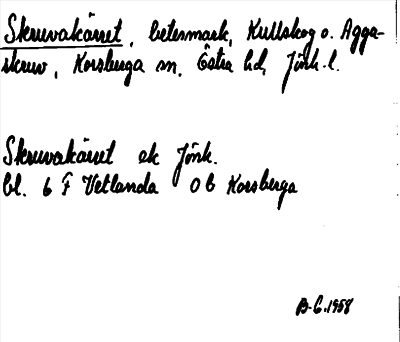 Skruvakärret, betesmark, Kullskog o. Agga-
skruv, Korsberga sn, Östra hd, Jönk. l.
Skruvakärret ek Jönk.
bl. 6 F Vetlanda 0 b Korsberga
B-G. 1958